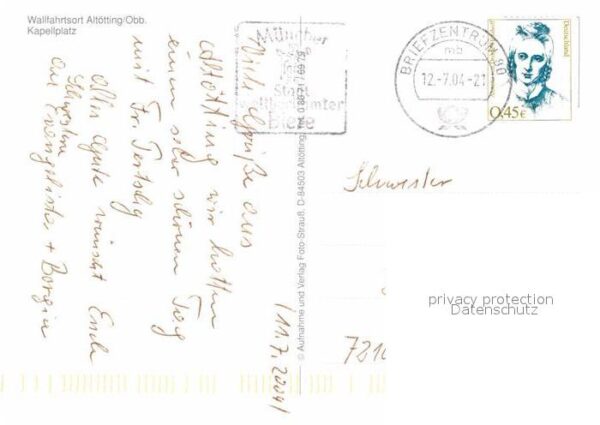 Wallfahrtsort Altötting/Obb.
Kapellplatz
Münchner
Stadt
weltberühmter
Biere
BRIEFZENTRUM 80
mb
12.-7.04-21
Deutschland
0,45€
Viele Grüße aus
Altötting wir hatten
einen sehr schönen Tag
mit Fr.
Alles Gute wünscht Euch
Schwester
(11.7.2004)
© Aufnahme und Verlag Foto-Strauß, D-84503 Altötting, Tel. 0 86 71 / 69 79
Schwester
privacy protection
Datenschutz